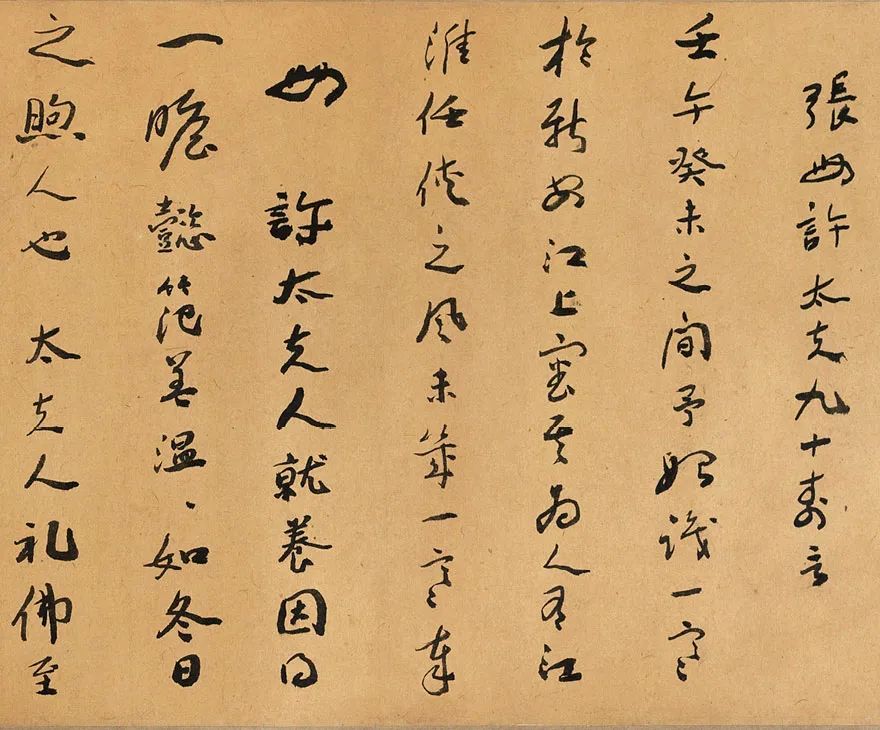 張母許太夫九十壽言
壬午癸未之間予始識一齋
於新安江上審其為人有江
淮任俠之風未幾一齋奉
母許太夫人就養因得
一瞻懿範善溫溫如冬日
之煦人也 太夫人礼佛至